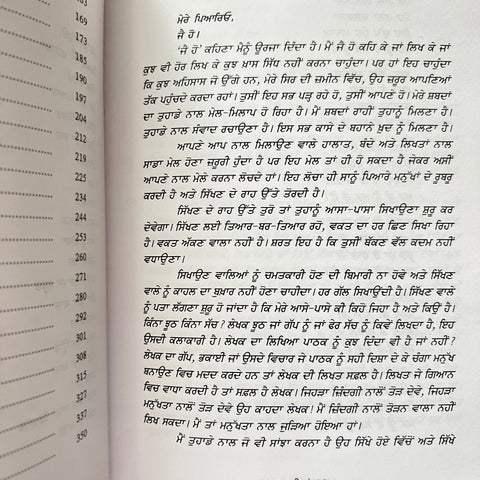 163
169
173
185
190
197
204
212
219
225
234
244
253
260
271
280
292
301
308
315
327
337
350
ਮੇਰੇ ਪਿਆਰਿਓ,
ਜੈ ਹੋ।
'ਜੈ ਹੋ' ਕਹਿਣਾ ਮੈਨੂੰ ਊਰਜਾ ਦਿੰਦਾ ਹੈ। ਮੈਂ ਜੈ ਹੋ ਕਹਿ ਕੇ ਜਾਂ ਲਿਖ ਕੇ ਜਾਂ
ਕੁਝ ਵੀ ਹੋਰ ਲਿਖ ਕੇ ਕੁਝ ਖ਼ਾਸ ਸਿੱਧ ਨਹੀਂ ਕਰਨਾ ਚਾਹੁੰਦਾ। ਪਰ ਹਾਂ ਇਹ ਚਾਹੁੰਦਾ
ਕਿ ਕੁਝ ਅਹਿਸਾਸ ਜੋ ਉੱਗੇ ਹਨ, ਮੇਰੇ ਸਿਰ ਦੀ ਜ਼ਮੀਨ ਵਿੱਚ, ਉਹ ਜ਼ਰੂਰ ਆਪਣਿਆਂ
ਤੱਕ ਪਹੁੰਚਦੇ ਕਰਦਾ ਰਹਾਂ। ਤੁਸੀਂ ਇਹ ਸਭ ਪੜ੍ਹ ਰਹੇ ਹੋ, ਤੁਸੀਂ ਆਪਣੇ ਹੋ। ਮੇਰੇ ਸ਼ਬਦਾਂ
ਦਾ ਤੁਹਾਡੇ ਨਾਲ ਮੇਲ-ਮਿਲਾਪ ਹੋ ਰਿਹਾ ਹੈ। ਮੈਂ ਸ਼ਬਦਾਂ ਰਾਹੀਂ ਤੁਹਾਨੂੰ ਮਿਲਣਾ ਹੈ।
ਤੁਹਾਡੇ ਨਾਲ ਸੰਵਾਦ ਰਚਾਉਣਾ ਹੈ। ਇਸ ਸਭ ਕਾਸੇ ਦੇ ਬਹਾਨੇ ਖ਼ੁਦ ਨੂੰ ਮਿਲਣਾ ਹੈ।
ਆਪਣੇ ਆਪ ਨਾਲ ਮਿਲਾਉਣ ਵਾਲੇ ਹਾਲਾਤ, ਬੰਦੇ ਅਤੇ ਲਿਖਤਾਂ ਨਾਲ
ਸਾਡਾ ਮੇਲ ਹੋਣਾ ਜ਼ਰੂਰੀ ਹੁੰਦਾ ਹੈ ਪਰ ਇਹ ਮੇਲ ਤਾਂ ਹੀ ਹੋ ਸਕਦਾ ਹੈ ਜੇਕਰ ਅਸੀਂ
ਆਪਣੇ ਨਾਲ ਮੇਲੇ ਕਰਨਾ ਲੋਚਦੇ ਹਾਂ। ਇਹ ਲੋਚਾ ਹੀ ਸਾਨੂੰ ਪਿਆਰੇ ਮਨੁੱਖਾਂ ਦੇ ਰੂਬਰੂ
ਕਰਦੀ ਹੈ ਅਤੇ ਸਿੱਖਣ ਦੇ ਰਾਹ ਉੱਤੇ ਤੋਰਦੀ ਹੈ।
ਸਿੱਖਣ ਦੇ ਰਾਹ ਉੱਤੇ ਤੁਰੋ ਤਾਂ ਤੁਹਾਨੂੰ ਆਸਾ-ਪਾਸਾ ਸਿਖਾਉਣਾ ਸ਼ੁਰੂ ਕਰ
ਦੇਵੇਗਾ। ਸਿੱਖਣ ਲਈ ਤਿਆਰ-ਬਰ-ਤਿਆਰ ਰਹੋ, ਵਕਤ ਦਾ ਹਰ ਛਿਣ ਸਿਖਾ ਰਿਹਾ
ਹੈ। ਵਕਤ ਅੱਕਣ ਵਾਲਾ ਨਹੀਂ ਹੈ। ਸ਼ਰਤ ਇਹ ਹੈ ਕਿ ਤੁਸੀਂ ਥੱਕਣ ਵੱਲ ਕਦਮ ਨਹੀਂ
ਵਧਾਉਣਾ।
ਸਿਖਾਉਣ ਵਾਲਿਆਂ ਨੂੰ ਚਮਤਕਾਰੀ ਹੋਣ ਦੀ ਬਿਮਾਰੀ ਨਾ ਹੋਵੇ ਅਤੇ ਸਿੱਖਣ
ਵਾਲੇ ਨੂੰ ਕਾਹਲ ਦਾ ਬੁਖ਼ਾਰ ਨਹੀਂ ਹੋਣਾ ਚਾਹੀਦਾ। ਹਰ ਗੱਲ ਸਿਖਾਉਂਦੀ ਹੈ। ਸਿੱਖਣ ਵਾਲੇ
ਨੂੰ ਪਤਾ ਲੱਗਣਾ ਸ਼ੁਰੂ ਹੋ ਜਾਂਦਾ ਹੈ ਕਿ ਮੇਰੇ ਆਸੇ-ਪਾਸੇ ਕੀ ਕਿਹੋ ਜਿਹਾ ਹੈ ਅਤੇ ਕਿਉਂ ਹੈ।
ਕਿੰਨਾ ਝੂਠ ਕਿੰਨਾ ਸੱਚ? ਲੇਖਕ ਝੂਠ ਜਾਂ ਗੱਪ ਨੂੰ ਜਾਂ ਫੇਰ ਸੱਚ ਨੂੰ ਕਿਵੇਂ ਲਿਖਦਾ ਹੈ, ਇਹ
ਉਸਦੀ ਕਲਾਕਾਰੀ ਹੈ। ਲੇਖਕ ਦਾ ਲਿਖਿਆ ਪਾਠਕ ਨੂੰ ਕੁਝ ਦਿੰਦਾ ਵੀ ਹੈ ਜਾਂ ਨਹੀਂ?
ਲੇਖਕ ਦਾ ਗੱਪ, ਭਕਾਈ ਜਾਂ ਉਸਦੇ ਵਿਚਾਰ ਜੇ ਪਾਠਕ ਨੂੰ ਸਹੀ ਦਿਸ਼ਾ ਦੇ ਕੇ ਚੰਗਾ ਮਨੁੱਖ
ਬਨਾਉਣ ਵਿਚ ਮਦਦ ਕਰਦੇ ਹਨ ਤਾਂ ਲੇਖਕ ਦੀ ਲਿਖਤ ਸਫ਼ਲ ਹੈ। ਲਿਖਤ ਜੇ ਗਿਆਨ
ਵਿਚ ਵਾਧਾ ਕਰਦੀ ਹੈ ਤਾਂ ਸਫ਼ਲ ਹੈ ਲੇਖਕ। ਜਿਹੜਾ ਜ਼ਿੰਦਗੀ ਨਾਲੋਂ ਤੋੜ ਦੇਵੇ, ਜਿਹੜਾ
ਮਨੁੱਖਤਾ ਨਾਲੋਂ ਤੋੜ ਦੇਵੇ ਉਹ ਕਾਹਦਾ ਲੇਖਕ! ਮੈਂ ਜ਼ਿੰਦਗੀ ਨਾਲੋਂ ਤੋੜਨ ਵਾਲਾ ਨਹੀਂ
ਲਿਖ ਸਕਦਾ। ਮੈਂ ਤਾਂ ਮਨੁੱਖਤਾ ਨਾਲ ਜੁੜਿਆ ਹੋਇਆ ਹਾਂ।
ਮੈਂ ਤੁਹਾਡੇ ਨਾਲ ਜੋ ਵੀ ਸਾਂਝਾ ਕਰਨਾ ਹੈ ਉਹ ਸਿੱਖੇ ਹੋਏ ਵਿੱਚੋਂ ਅਤੇ ਸਿੱਖੇ